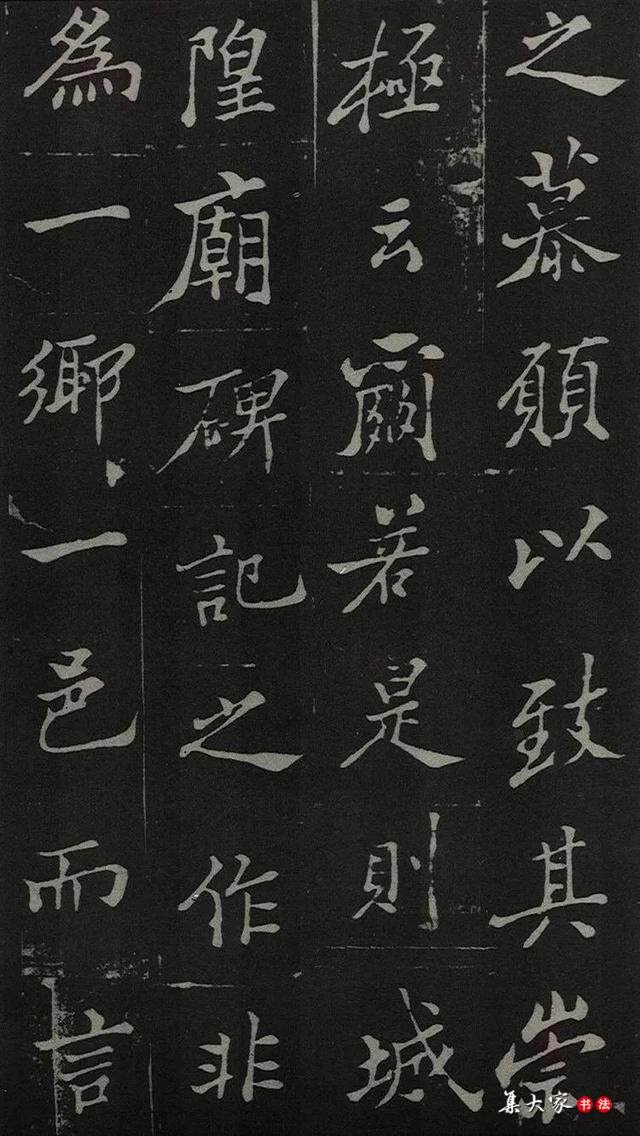 之慕願以致其崇
極云爾若是則城
隍廟碑記之作非
為一鄉一邑而言
集大家书法